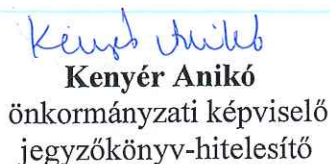 Kenyér Anikó
Kenyér Anikó
önkormányzati képviselő
jegyzőkönyv-hitelesítő